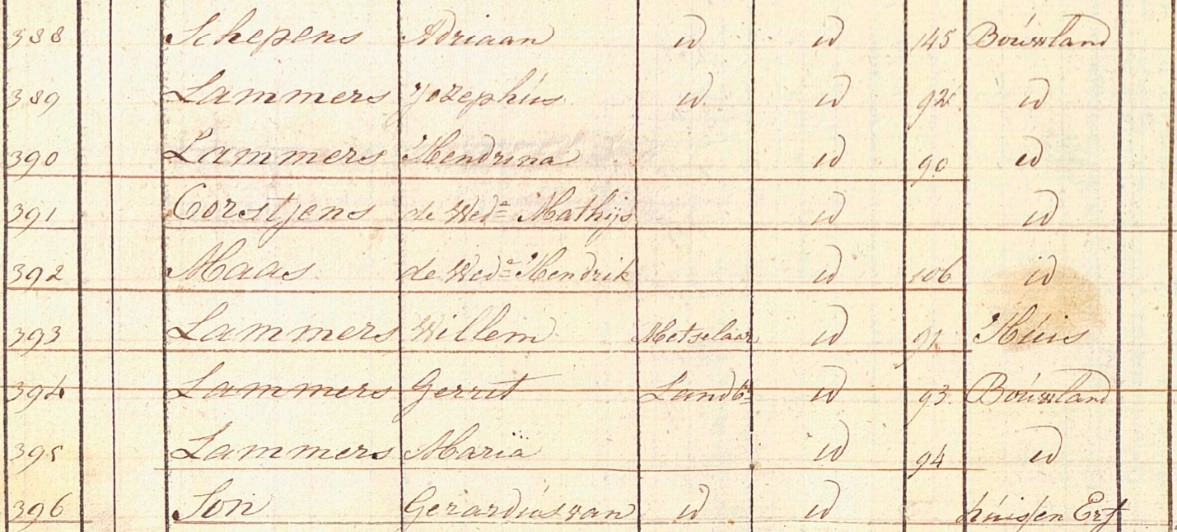 388 Schepens Adriaan id id 145 Bouwland
389 Lammers Jozephus id id 92 id
390 Lammers Hendrina id 90 id
391 Corstjens de Wed.e Mathijs id id
392 Maas de Wed.e Hendrik id 106 id
393 Lammers Willem Metselaar id 92 Huis
394 Lammers Gerrit Landb.r id 93 Bouwland
395 Lammers Maria id 94 id
396 Son Gerardus van id id huis en Erf